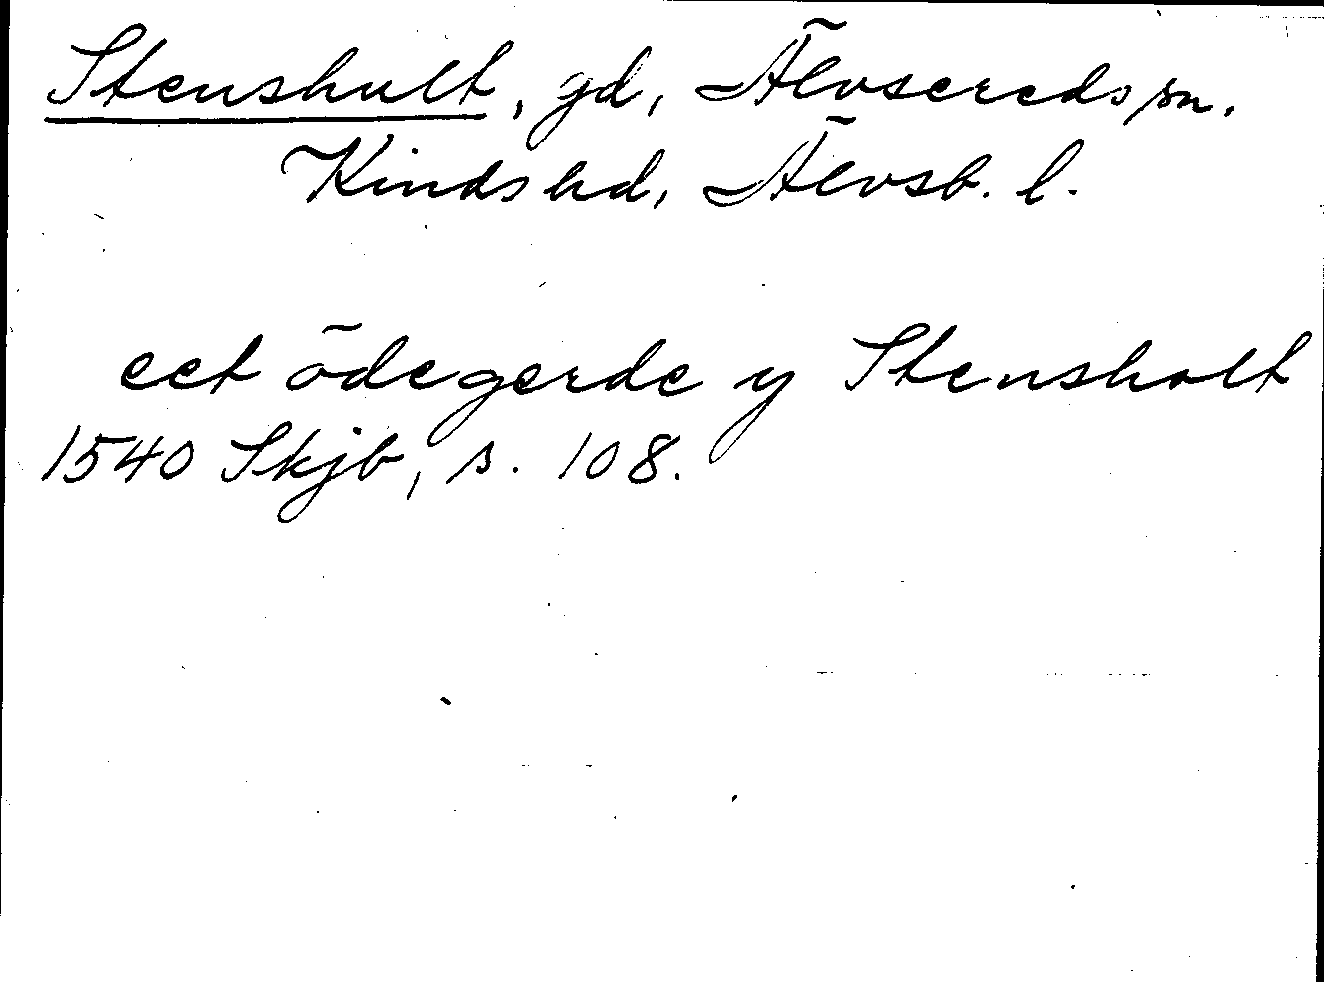 Stenshult, gd, Älvsereds sn.
Kinds hd, Älvsb. l.
eet ödegerde y Stensholt
1540 Skjb, s. 108.